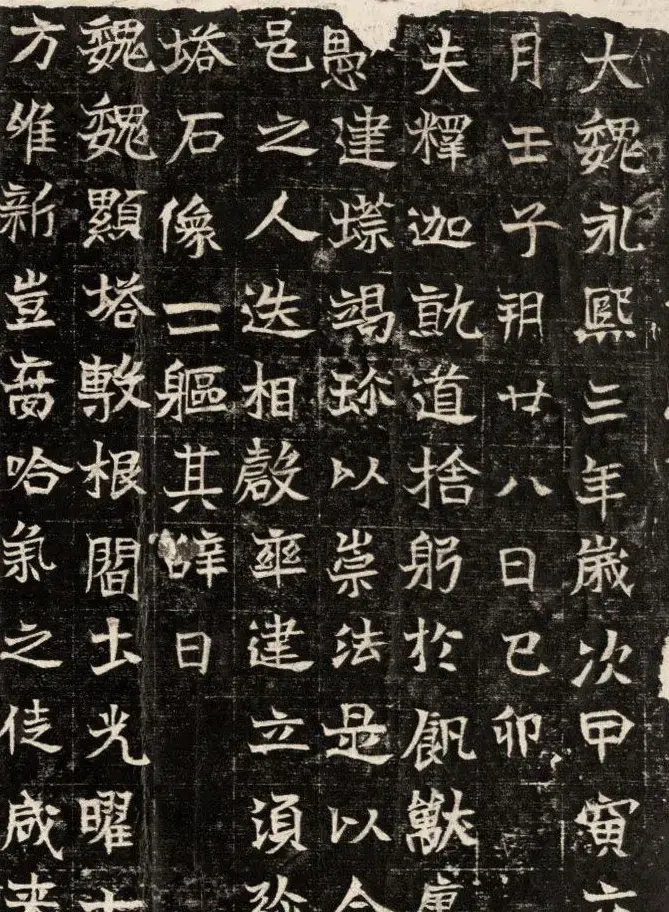 大魏永熙三年歲次甲寅六
月壬子朔廿八日己卯
夫釋迦說道捨躬於飢獸
愚建㙮竭珎以崇法是以今
邑之人迭相磬率建立須弥
塔石像二軀其辞曰
魏魏顯塔敷根閻士光曜十
方維新豈啻哈氣之徒咸来